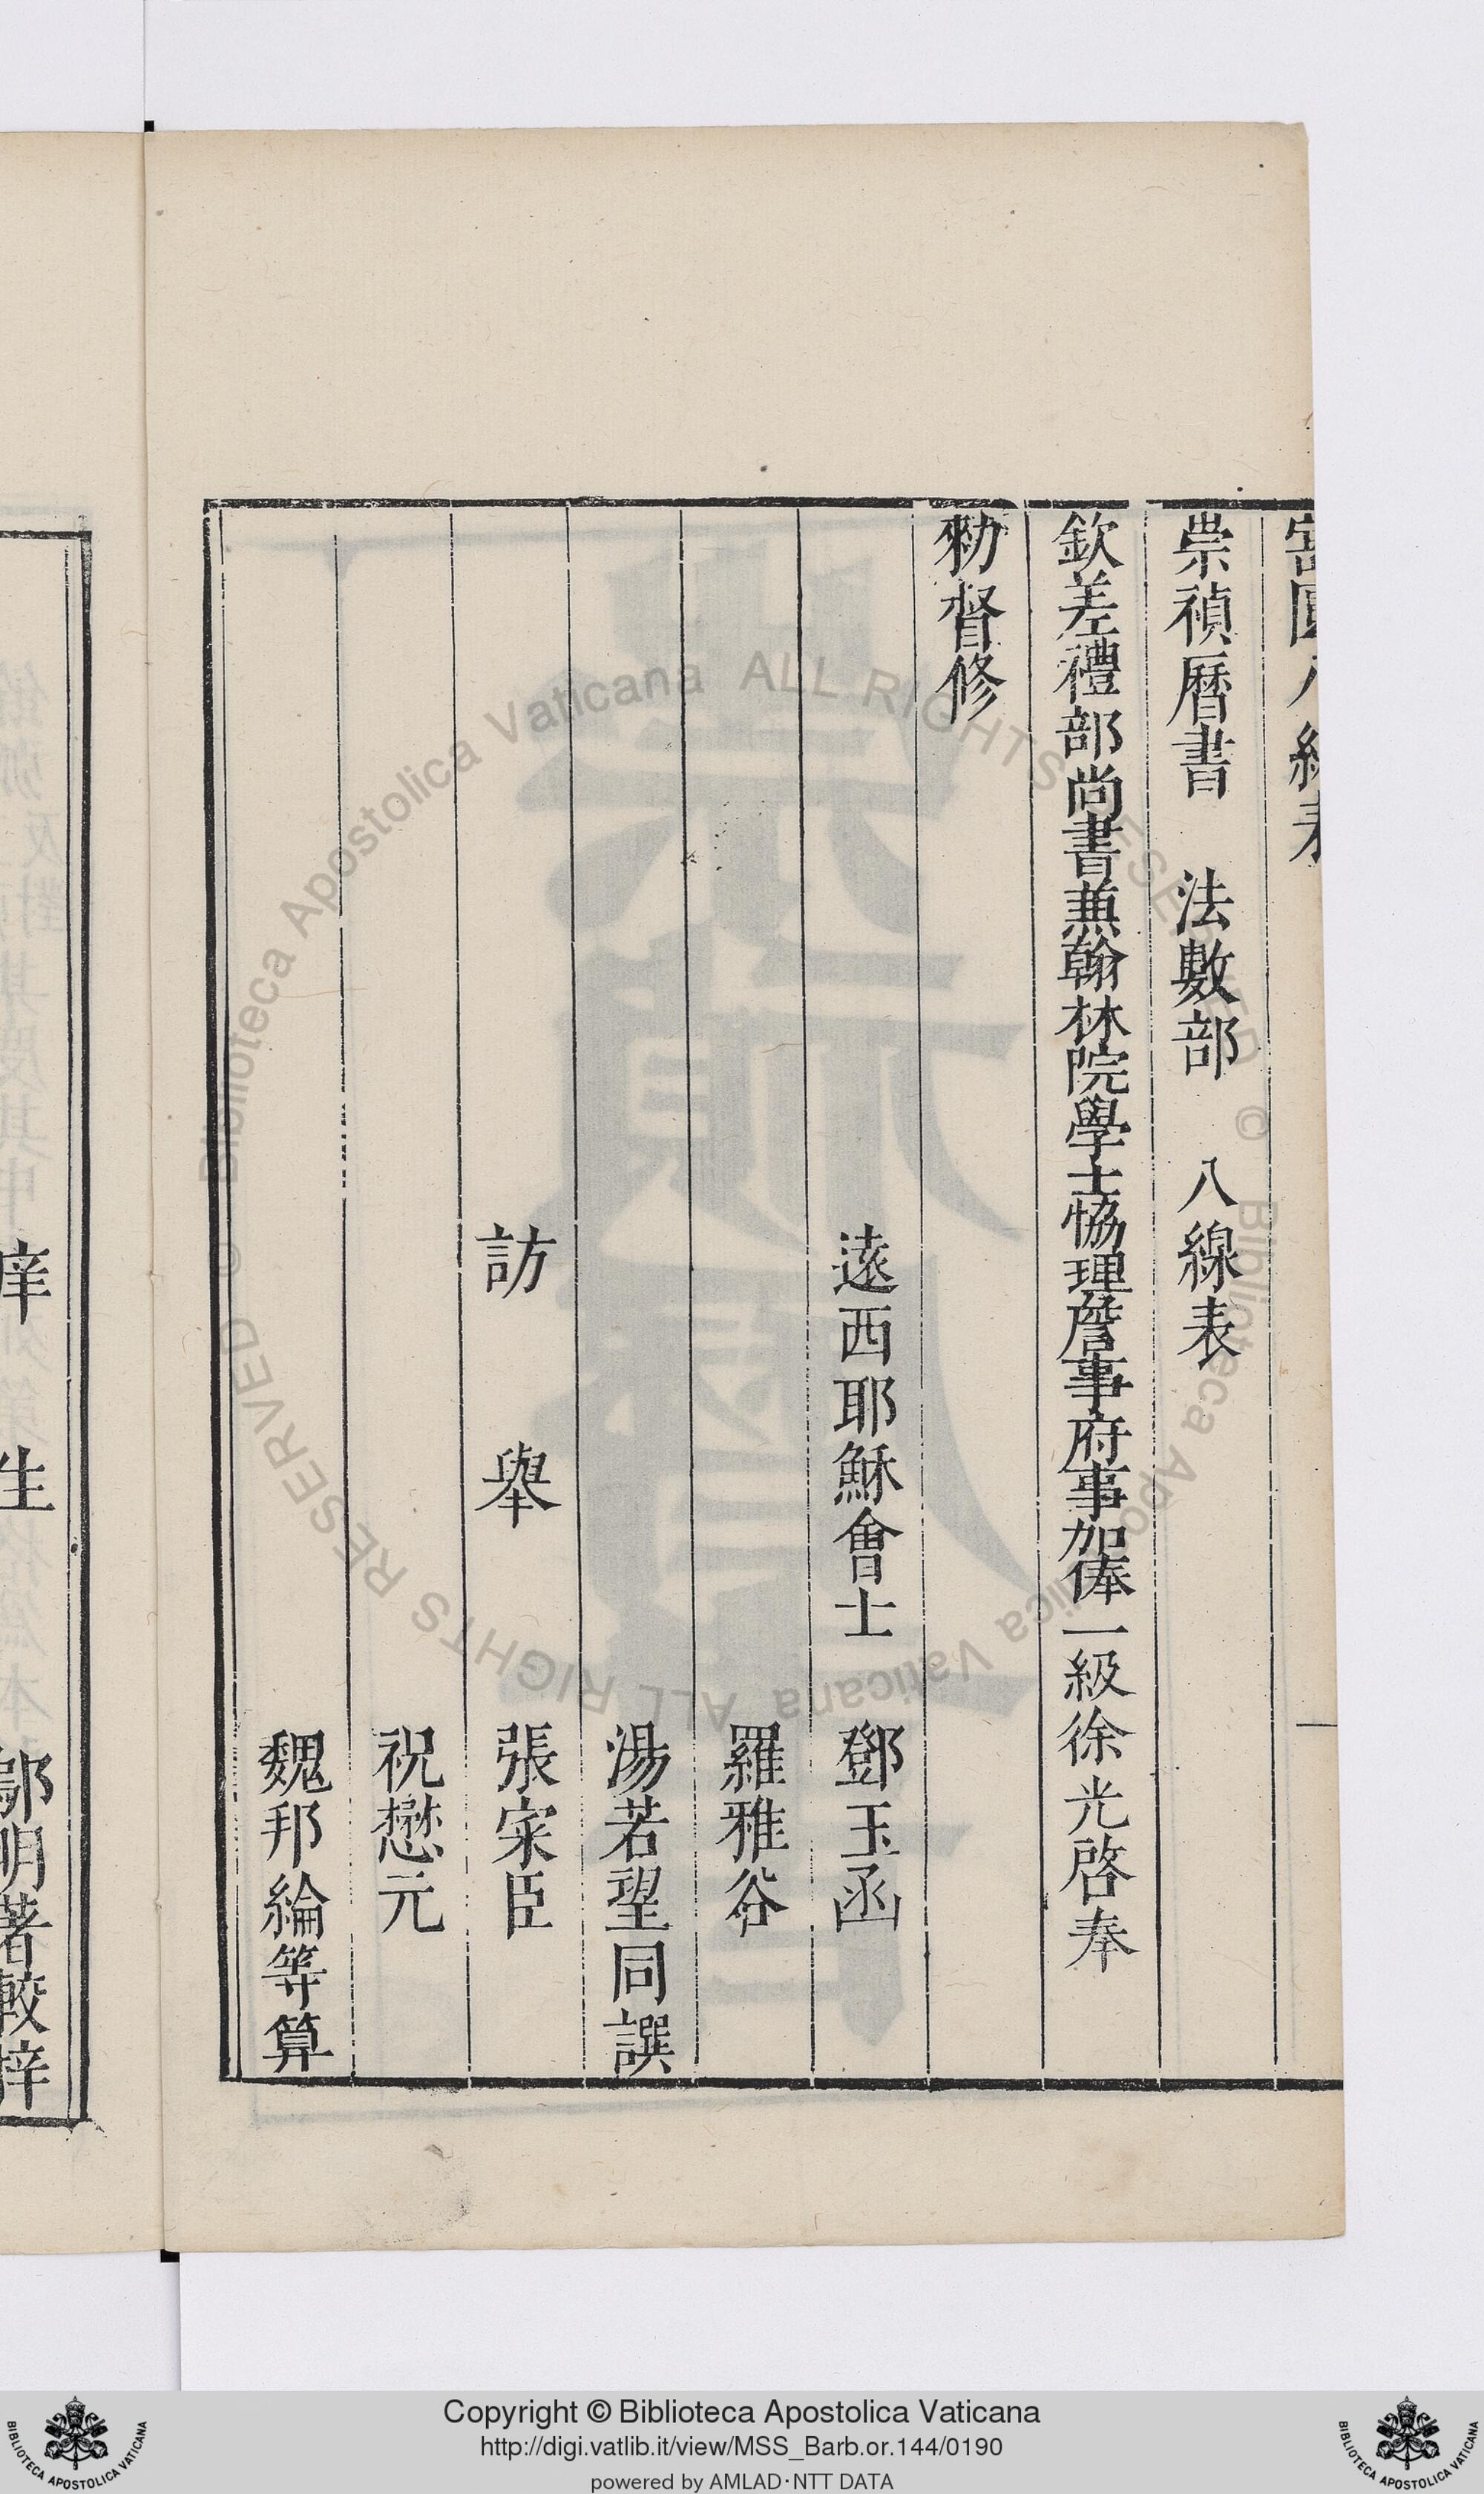 割圓八線表 一
崇禎曆書 法數部 八線表
欽差禮部尚書兼翰林院學士恊理詹事府事加俸一級徐光啓奉
勑督修
遠西耶穌會士 鄧玉函
羅雅谷
湯若望同譔
訪舉 張寀臣
祝懋元
魏邦綸等算
庠生 鄔明著較梓
Copyright © Biblioteca Apostolica Vaticana
http://digi.vatlib.it/view/MSS_Barb.or.144/0190
powered by AMLAD·NTT DATA
BIBLIOTECA APOSTOLICA VATICANA
BIBLIOTECA APOSTOLICA VATICANA
© Biblioteca Apostolica Vaticana ALL RIGHTS RESERVED
© Biblioteca Apostolica Vaticana ALL RIGHTS RESERVED